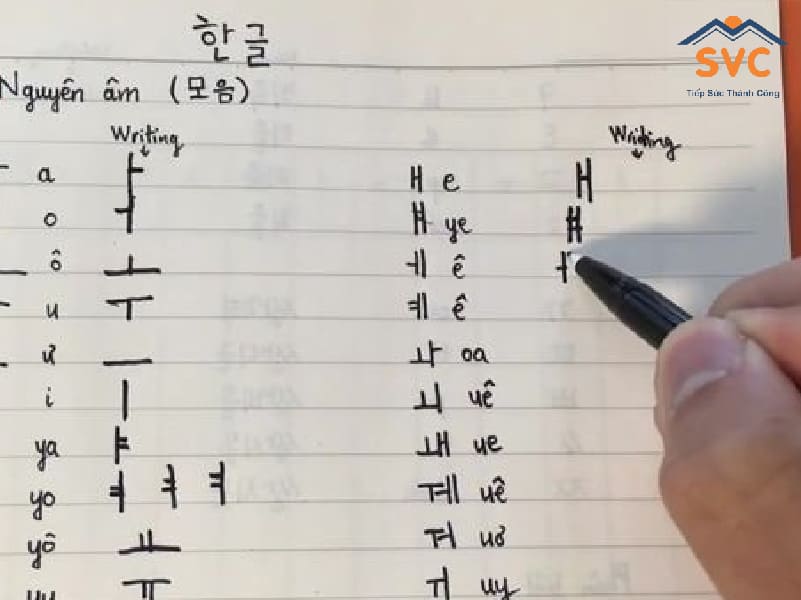 한글
SVC
Tiếp Sức Thành Công
Nguyên âm (모음)
Writing Writing
a ㅏ ㅐ e ㅐ
o ㅓ ㅒ ye ㅒ
ô ㅗ ㅔ ê ㅓ
u ㅜ ㅖ ê
ư ㅡ ㅘ oa
i ㅣ ㅚ uê
ya ㅑ ㅙ ue
yo ㅕ ㅕ ㅕ ㅞ uê
yô ㅛ ㅝ uơ
ㅠ ㅟ uy